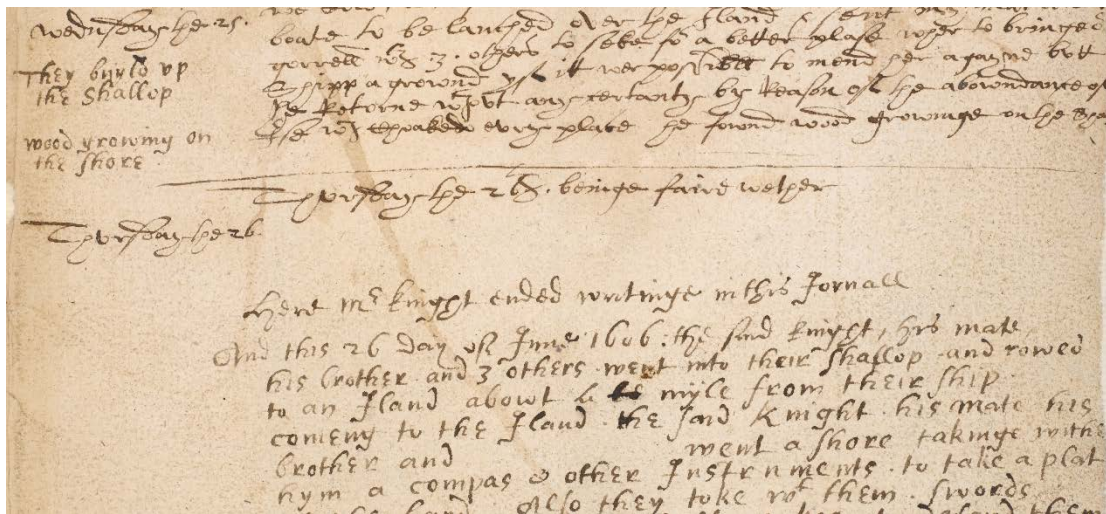 wednesday the 25.
They buyld up
the Shallop
wood growing on
the shore
boate to be lanched over the Iland & sent
gorrell wth 3. others to seke for a better plase wher to bringe
Shipp a grownd yf it wer possible to mend her agayne but
he Returne without any certanty by Reason of the abowndance of
Ise wch choaked every place he fownd wood growinge on the
Thursday the 26th. beinge faire wether
Thursday the 26.
Here mr knight ended writinge in this Jornall
And this 26 day of June 1606: the said knight, his mate
his brother and 3 others went into their shallop and rowed
to an Iland abowt a myle from their ship
comeng to the Iland the said knight his mate his
brother and went a shore takinge with
hym a compas & other Instruments to take a plat
Also they toke wt them swords